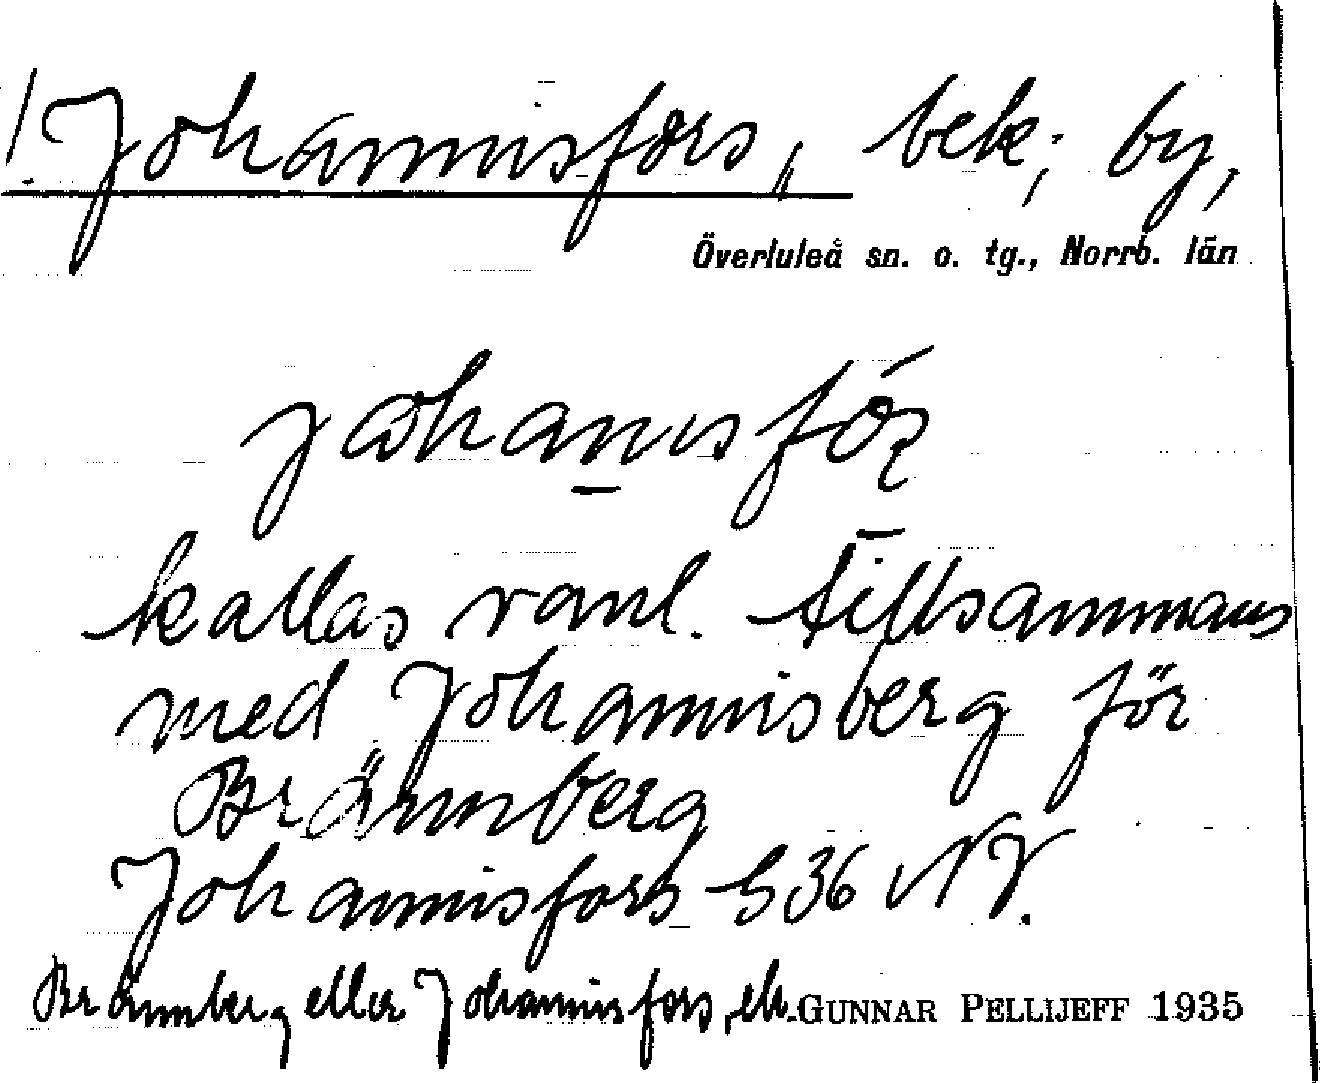 1. Johannisfors, bek; by,
Överluleå sn. o. tg., Norrb. län
johanisfórs
kallas vanl. tillsammans
med Johannisberg för
Brännberg
Johannisfors S 36 NV.
Brännberg eller Johannisfors, ek.
GUNNAR PELLIJEFF 1935